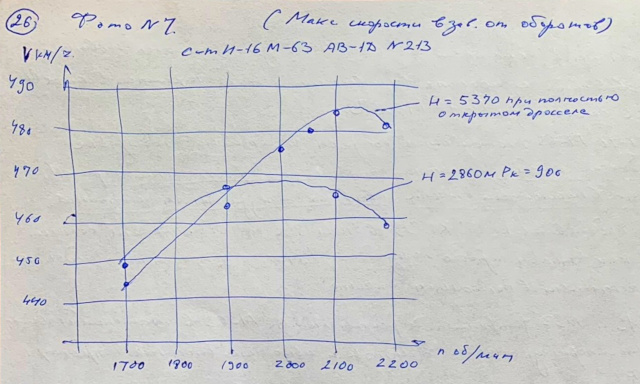 26) Фото N 7. (Макс скорости в зав. от оборотов)
V км/г. с-т И-16 М-63 АВ-1Д N 213
490
480
470
460
450
440
H = 5370 при полностью
открытом дросселе
H = 2860 м Рк = 900
1700 1800 1900 2000 2100 2200 n об/мин